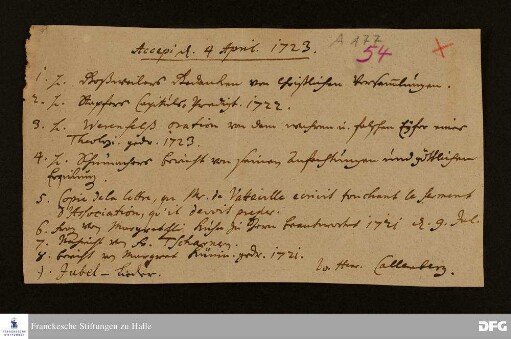 Accepi d. 4 April. 1723.
A 177
54
1. H. Gedanken von Christlichen Versamlungen.
2. H. Capituls Predigt. 1722.
3. H. Werenfels oration von dem wahren u. falschen Eyfer eines
Theologi. gedr. 1723.
4. H. Schumachers bericht von seinen Anfechtungen und göttlichen
5. Copie de la lettre, que Mr. de Vatteville ecrivit touchant le serment
d'Association, qu'il devoit preter.
6. von 1721 d. 9. Jul.
7. von H. Tscharner.
8. bericht von Margret gedr. 1721.
9. Jubel-Lieder.
Callenberg.
Franckesche Stiftungen zu Halle
DFG